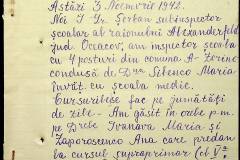 Astăzi 3 Noemvrie 1942.
Noi I Gr. Șerban subinspector
școlar al raionului Alexanderfeld
jud. Oceacov, am inspectat școala
cu 4 posturi din comuna A-
condusă de Dna Maria
învăț. cu școala medie.
Cursurile se fac pe jumătăți
de zile. Am găsit în orele p.m.
pe D-rele Ivanova Maria și
Zaporosenco Ana care predau
la cursul supraprimar (cl. Va